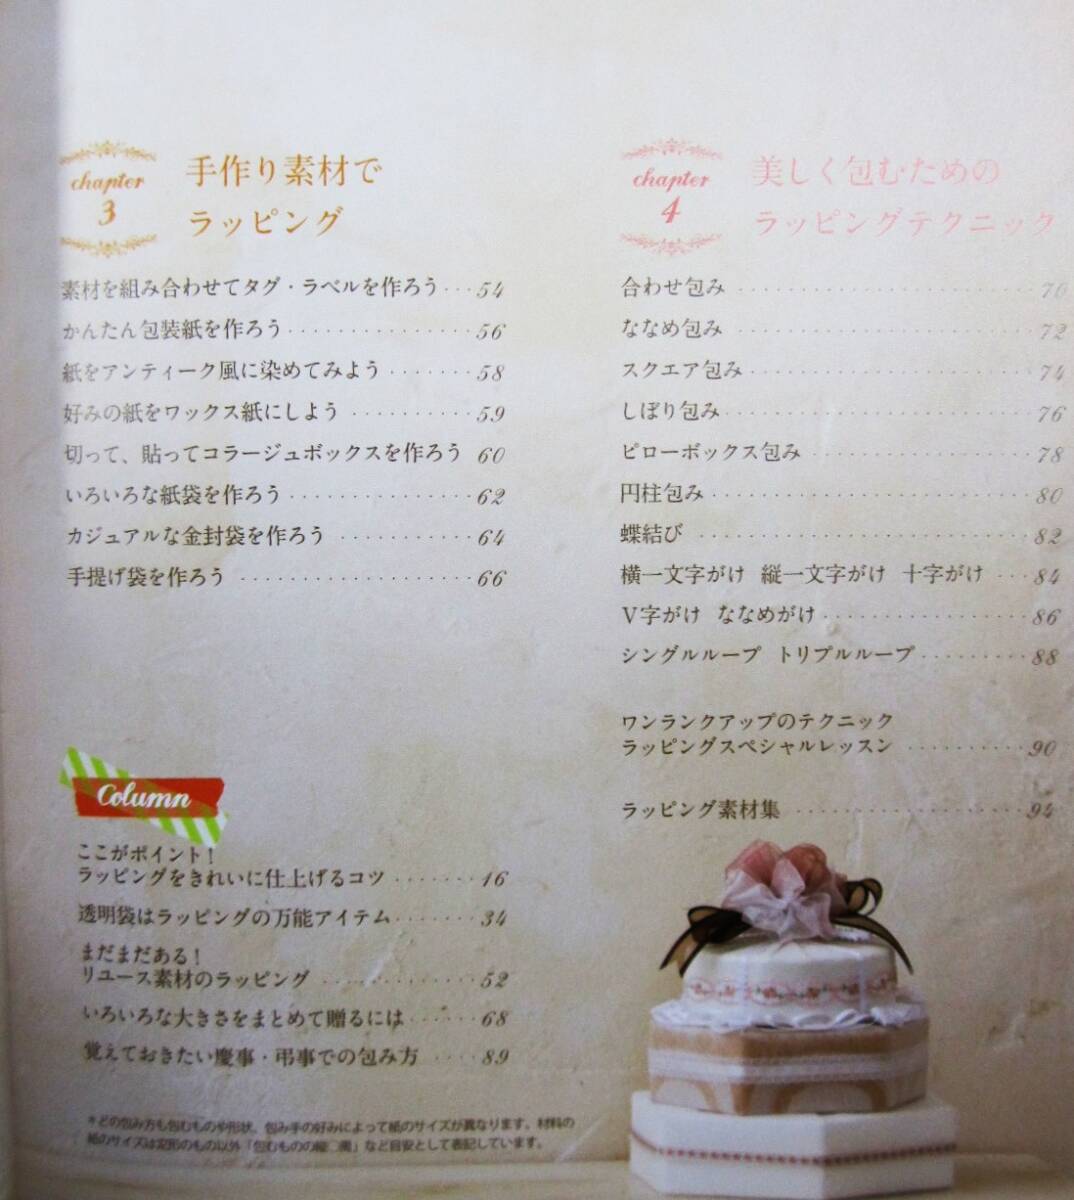 chapter
3
手作り素材で
ラッピング
素材を組み合わせてタグ・ラベルを作ろう…54
かんたん包装紙を作ろう……………56
紙をアンティーク風に染めてみよう………58
好みの紙をワックス紙にしよう…………59
切って、貼ってコラージュボックスを作ろう 60
いろいろな紙袋を作ろう……………62
カジュアルな金封袋を作ろう…………64
手提げ袋を作ろう………………66
Column
ここがポイント!
ラッピングをきれいに仕上げるコツ………16
透明袋はラッピングの万能アイテム………34
まだまだある!
リユース素材のラッピング……………52
いろいろな大きさをまとめて贈るには………68
覚えておきたい慶事・弔事での包み方……89
*どの包み方も包むものや形状、包み手の好みによって紙のサイズが異なります。材料の
紙のサイズは定形のもの以外「包むものの縦◯周」など目安として表記しています。
chapter
4
美しく包むための
ラッピングテクニック
合わせ包み………………70
ななめ包み………………72
スクエア包み………………74
しぼり包み………………76
ピローボックス包み……………78
円柱包み………………80
蝶結び………………82
横一文字がけ 縦一文字がけ 十字がけ…84
V字がけ ななめがけ……………86
シングルループ トリプルループ………88
ワンランクアップのテクニック
ラッピングスペシャルレッスン…………90
ラッピング素材集………………94